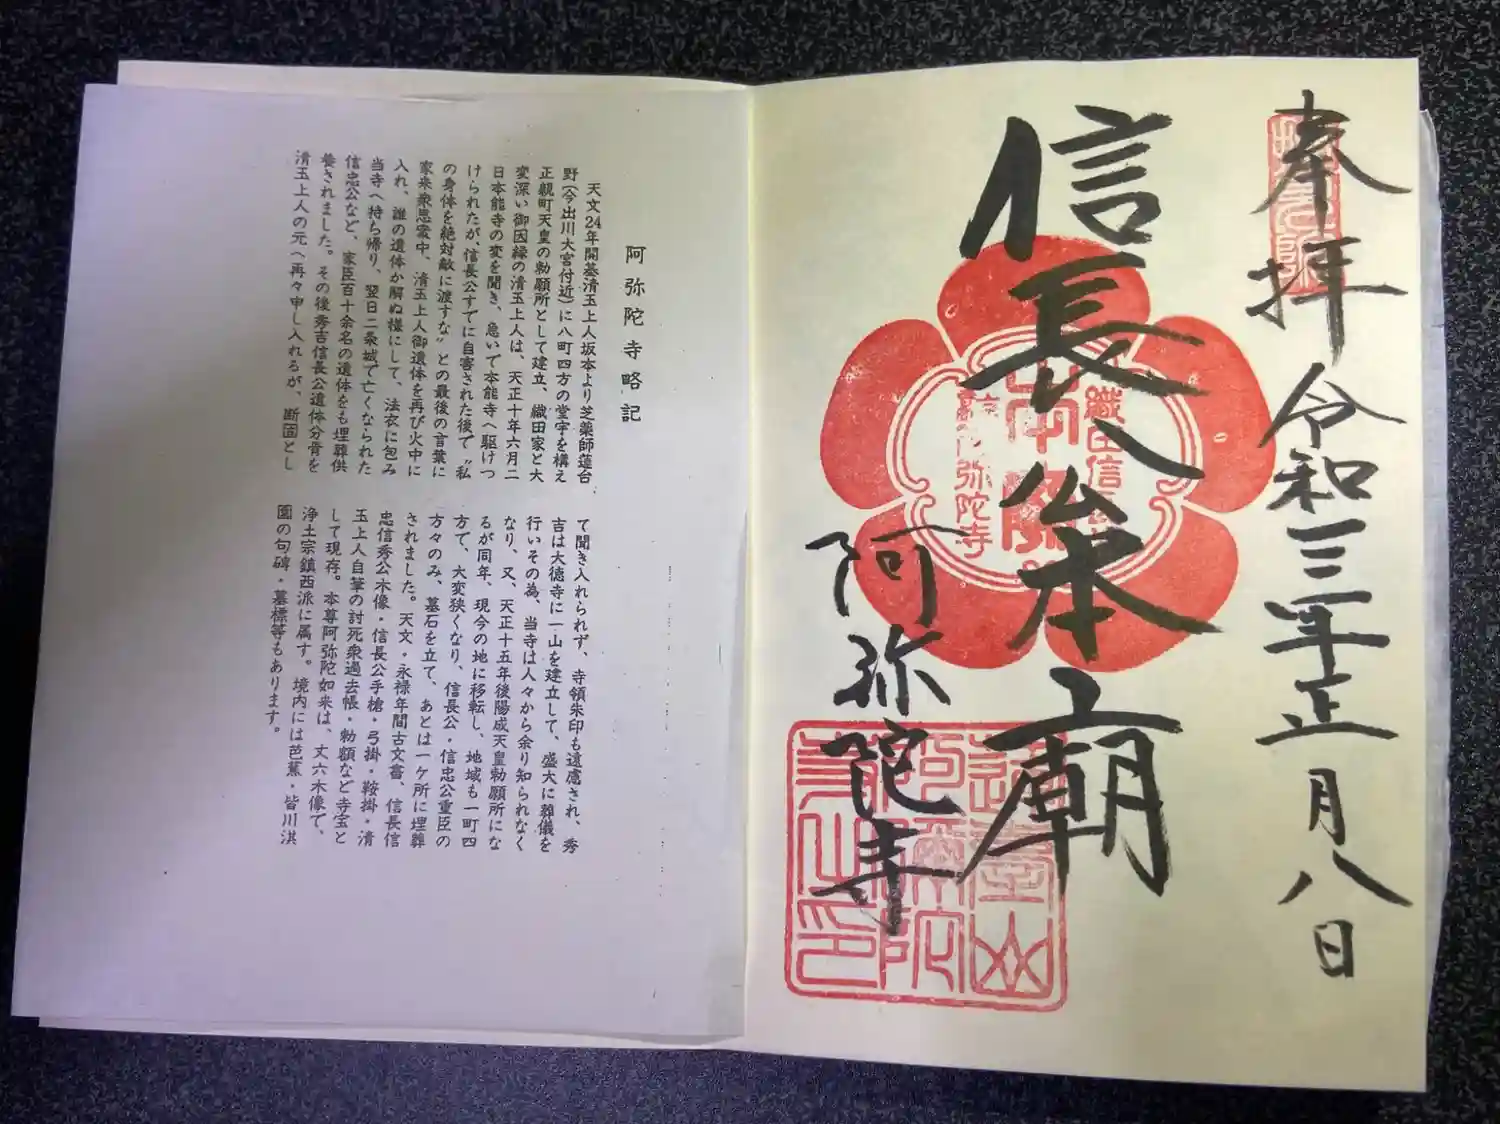 奉拝 令和三年正月八日
信長公本廟
阿弥陀寺
阿弥陀寺略記
天文24年開基清玉上人坂本より芝薬師蓮台
野(今出川大宮付近)に八町四方の堂宇を構え
正親町天皇の勅願所として建立、織田家と大
変深い御因縁の清玉上人は、天正十年六月二
日本能寺の変を聞き、急いで本能寺へ駆けつ
けられたが、信長公すでに自害された後で〝私
の身体を絶対敵に渡すな〟との最後の言葉に
家来衆思案中、清玉上人御遺体を再び火中に
入れ、誰の遺体か解ぬ様にして、法衣に包み
当寺へ持ち帰り、翌日二条城で亡くなられた
信忠公など、家臣百十余名の遺体をも埋葬供
養されました。その後秀吉信長公遺体分骨を
清玉上人の元へ再々申し入れるが、断固とし
て聞き入れられず、寺領朱印も遠慮され、秀
吉は大徳寺に一山を建立して、盛大に葬儀を
行いその為、当寺は人々から余り知られなく
なり、又、天正十五年後陽成天皇勅願所にな
るが同年、現今の地に移転し、地域も一町四
方て、大変狭くなり、信長公・信忠公重臣の
方々のみ、墓石を立て、あとは一ケ所に埋葬
されました。天文・永禄年間古文書、信長信
忠信秀公木像・信長公手槍・弓掛・鞍掛・清
玉上人自筆の討死衆過去帳・勅額など寺宝と
して現存。本尊阿弥陀如来は、丈六木像で、
浄土宗鎮西派に属す。境内には芭蕉・皆川淇
園の句碑・墓標等もあります。